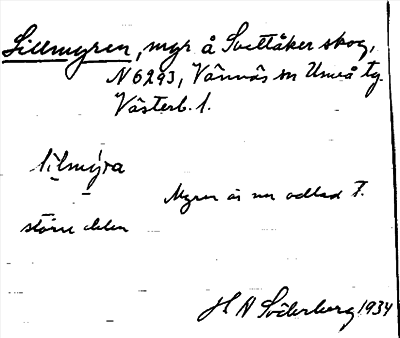 Lillmyren, myr å Svettåker skog,
N 6293, Vännäs sn Umeå tg.
Västerb. l.
lilmýra
Myren är nu odlad t.
större delen
H A Söderberg 1934